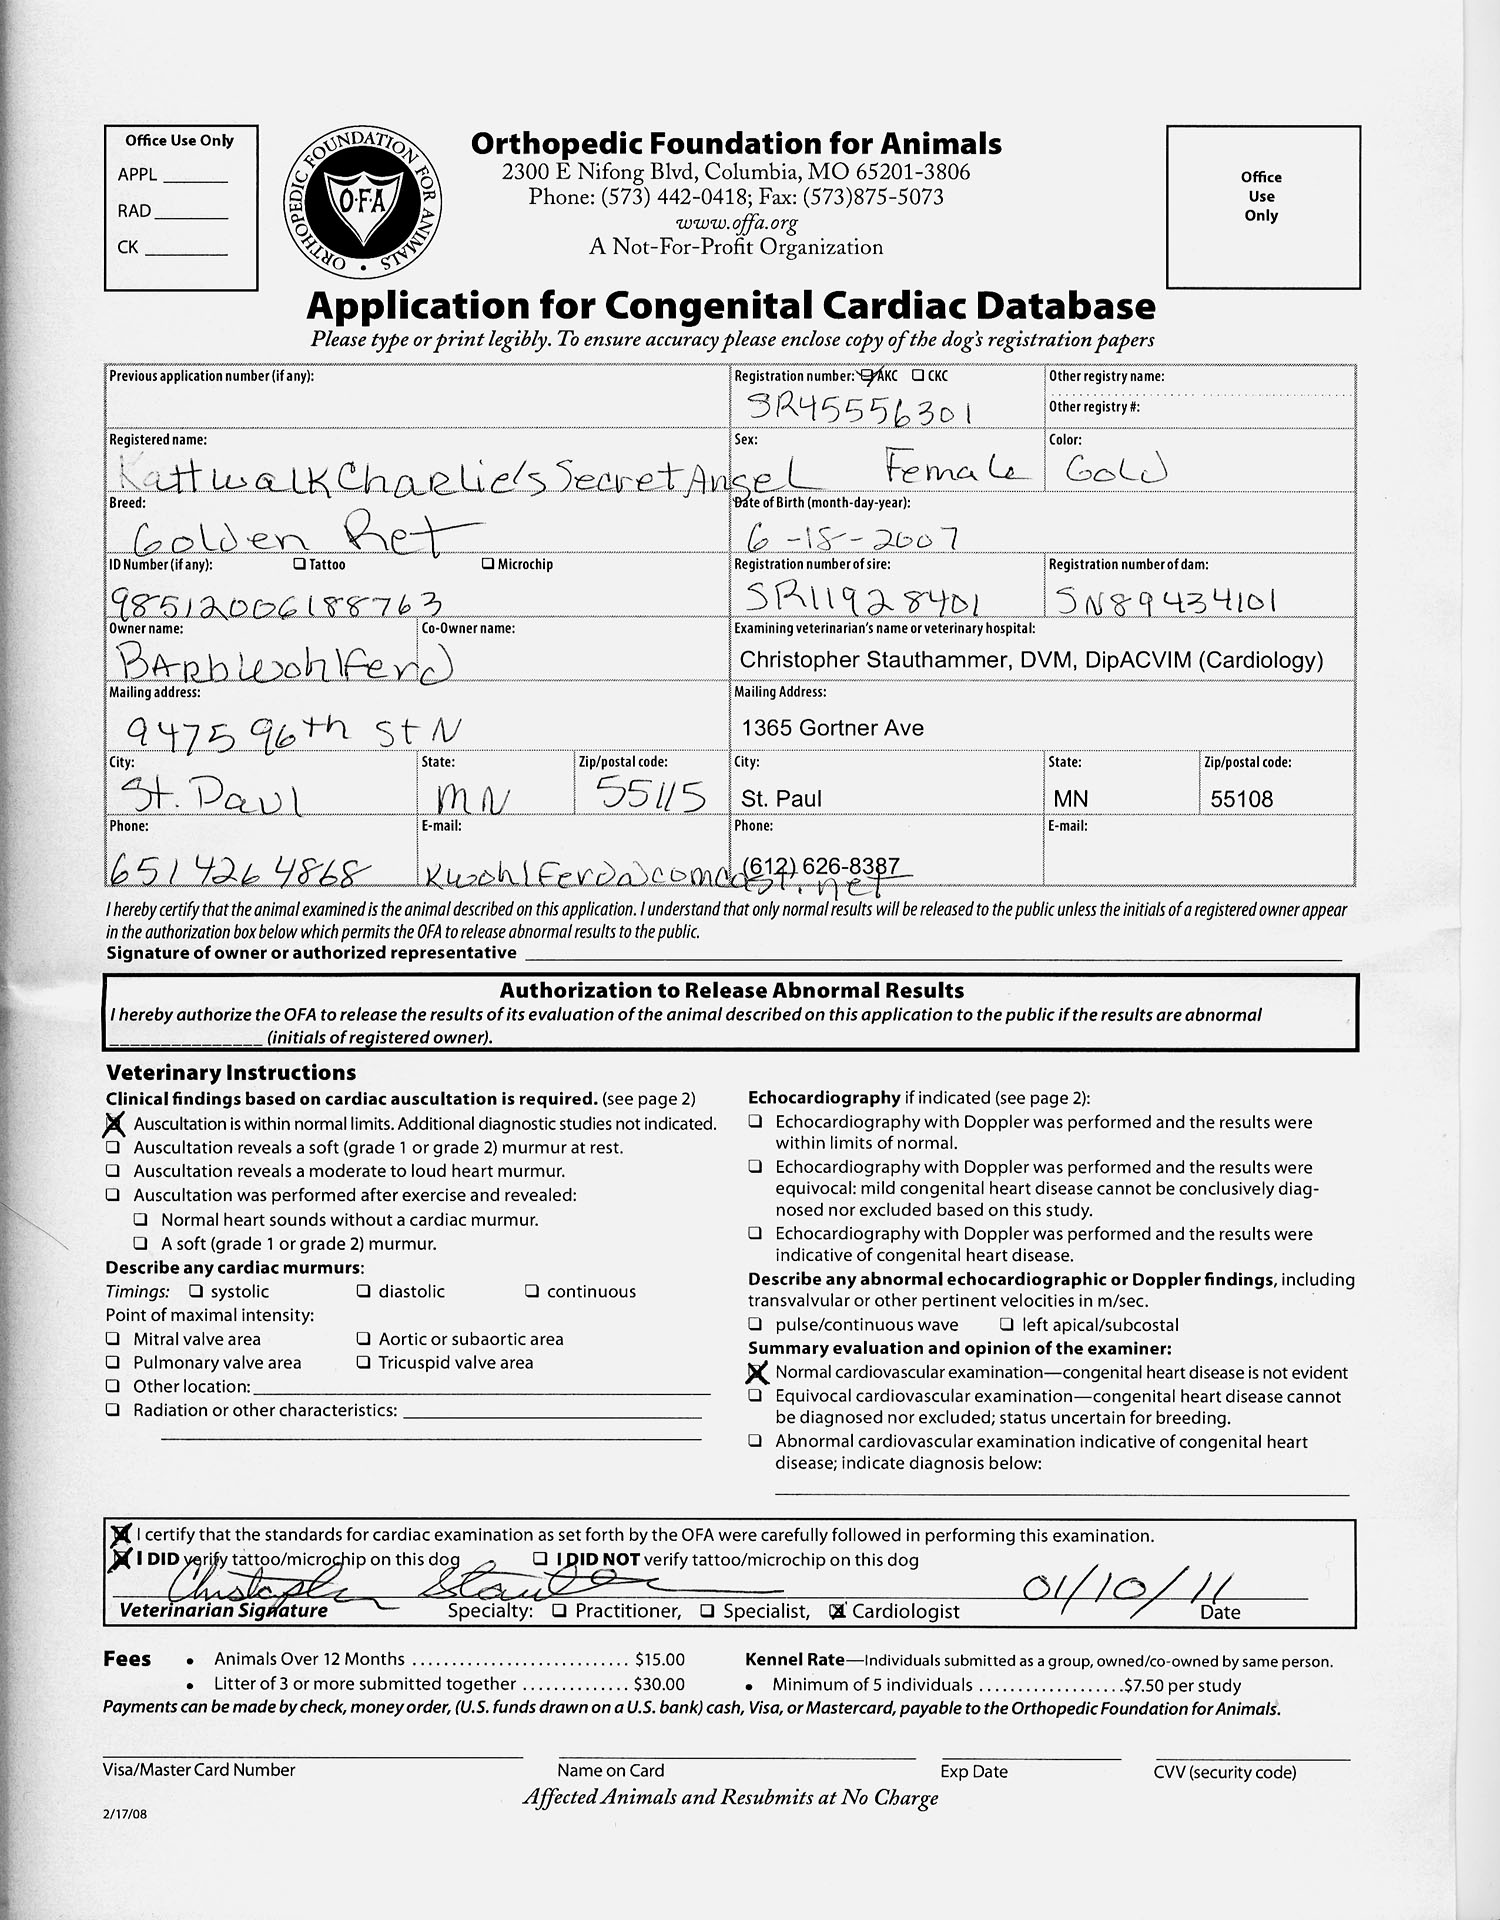 Office Use Only
APPL ______
RAD ______
CK ______
ORTHOPEDIC FOUNDATION FOR ANIMALS
O·F·A
Orthopedic Foundation for Animals
2300 E Nifong Blvd, Columbia, MO 65201-3806
Phone: (573) 442-0418; Fax: (573)875-5073
www.offa.org
A Not-For-Profit Organization
Office
Use
Only
Application for Congenital Cardiac Database
Please type or print legibly. To ensure accuracy please enclose copy of the dog's registration papers
Previous application number (if any): Registration number: AKC CKC Other registry name:
SR45556301 Other registry #:
Registered name: Sex: Color:
KattwalkCharlie's Secret Angel Female Gold
Breed: Date of Birth (month-day-year):
Golden Ret 6-18-2007
ID Number (if any): Tattoo Microchip Registration number of sire: Registration number of dam:
98512006188763 SR11928401 SN89434101
Owner name: Co-Owner name: Examining veterinarian's name or veterinary hospital:
BArb Wohlferd Christopher Stauthammer, DVM, DipACVIM (Cardiology)
Mailing address: Mailing Address:
9475 96th St N 1365 Gortner Ave
City: State: Zip/postal code: City: State: Zip/postal code:
St. Paul MN 55115 St. Paul MN 55108
Phone: E-mail: Phone: E-mail:
651 426 4868 kwohlferd@comcast.net (612) 626-8387
I hereby certify that the animal examined is the animal described on this application. I understand that only normal results will be released to the public unless the initials of a registered owner appear
in the authorization box below which permits the OFA to release abnormal results to the public.
Signature of owner or authorized representative
Authorization to Release Abnormal Results
I hereby authorize the OFA to release the results of its evaluation of the animal described on this application to the public if the results are abnormal
_______________ (initials of registered owner).
Veterinary Instructions
Clinical findings based on cardiac auscultation is required. (see page 2)
Auscultation is within normal limits. Additional diagnostic studies not indicated.
Auscultation reveals a soft (grade 1 or grade 2) murmur at rest.
Auscultation reveals a moderate to loud heart murmur.
Auscultation was performed after exercise and revealed:
Normal heart sounds without a cardiac murmur.
A soft (grade 1 or grade 2) murmur.
Describe any cardiac murmurs:
Timings: systolic diastolic continuous
Point of maximal intensity:
Mitral valve area Aortic or subaortic area
Pulmonary valve area Tricuspid valve area
Other location:
Radiation or other characteristics:
Echocardiography if indicated (see page 2):
Echocardiography with Doppler was performed and the results were
within limits of normal.
Echocardiography with Doppler was performed and the results were
equivocal: mild congenital heart disease cannot be conclusively diag-
nosed nor excluded based on this study.
Echocardiography with Doppler was performed and the results were
indicative of congenital heart disease.
Describe any abnormal echocardiographic or Doppler findings, including
transvalvular or other pertinent velocities in m/sec.
pulse/continuous wave left apical/subcostal
Summary evaluation and opinion of the examiner:
Normal cardiovascular examination—congenital heart disease is not evident
Equivocal cardiovascular examination—congenital heart disease cannot
be diagnosed nor excluded; status uncertain for breeding.
Abnormal cardiovascular examination indicative of congenital heart
disease; indicate diagnosis below:
I certify that the standards for cardiac examination as set forth by the OFA were carefully followed in performing this examination.
I DID verify tattoo/microchip on this dog I DID NOT verify tattoo/microchip on this dog
Christopher Stauthammer 01/10/11
Veterinarian Signature Specialty: Practitioner, Specialist, Cardiologist Date
Fees • Animals Over 12 Months ........................... $15.00
• Litter of 3 or more submitted together .............. $30.00
Kennel Rate—Individuals submitted as a group, owned/co-owned by same person.
• Minimum of 5 individuals ..................$7.50 per study
Payments can be made by check, money order, (U.S. funds drawn on a U.S. bank) cash, Visa, or Mastercard, payable to the Orthopedic Foundation for Animals.
Visa/Master Card Number Name on Card Exp Date CVV (security code)
Affected Animals and Resubmits at No Charge
2/17/08